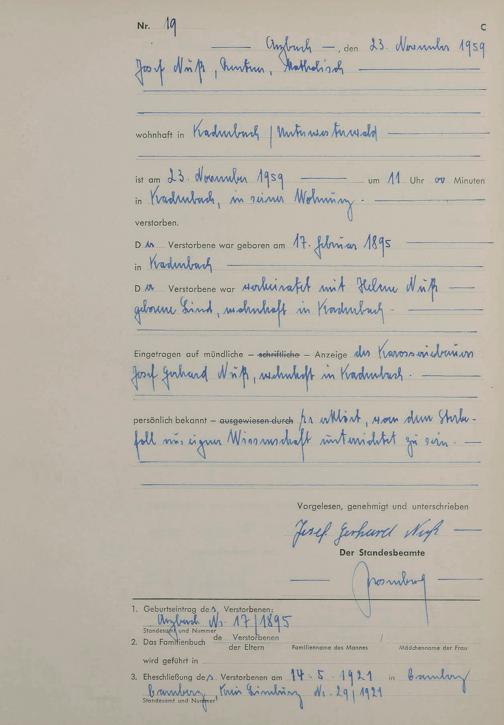 Nr. 19 C
Arzbach, den 23. November 1959
Josef Nuß, Rentner, katholisch
wohnhaft in Kadenbach / Unterwesterwald
ist am 23. November 1959 um 11 Uhr 00 Minuten
in Kadenbach, in seiner Wohnung
verstorben.
Der Verstorbene war geboren am 17. Februar 1895
in Kadenbach
Der Verstorbene war verheiratet mit Helene Nuß
geborene Lind, wohnhaft in Kadenbach.
Eingetragen auf mündliche – schriftliche – Anzeige des Karosseriebauers
Josef Gerhard Nuß, wohnhaft in Kadenbach.
persönlich bekannt – ausgewiesen durch Er erklärt, von dem Sterbe-
fall aus eigner Wissenschaft unterrichtet zu sein.
Vorgelesen, genehmigt und unterschrieben
Josef Gerhard Nuß
Der Standesbeamte
1. Geburtseintrag des Verstorbenen:
Arzbach Nr. 17/1895
Standesamt und Nummer
2. Das Familienbuch de Verstorbenen
der Eltern Familienname des Mannes / Mädchenname der Frau
wird geführt in
3. Eheschließung des Verstorbenen am 14.5.1921 in Camberg
Camberg, Kreis Limburg Nr. 29/1921
Standesamt und Nummer